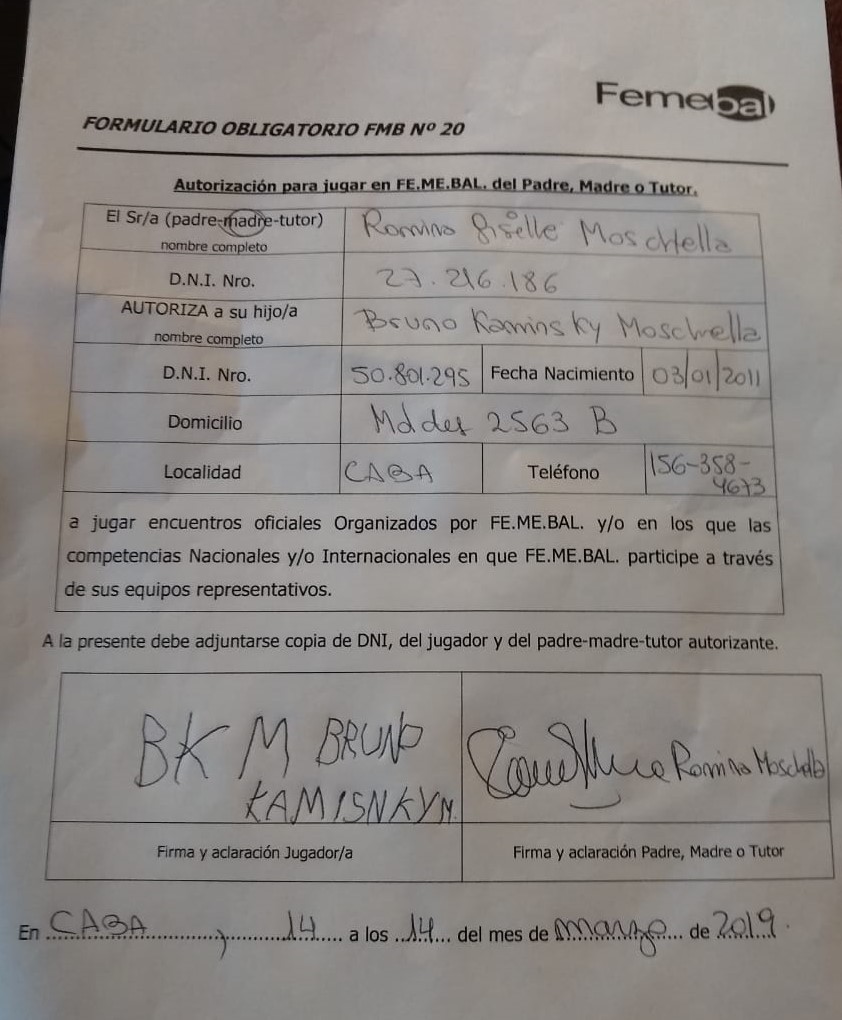 Femebal
FORMULARIO OBLIGATORIO FMB Nº 20
Autorización para jugar en FE.ME.BAL. del Padre, Madre o Tutor.
El Sr/a (padre-madre-tutor) Romina Giselle Moschella
nombre completo
D.N.I. Nro. 27.216.186
AUTORIZA a su hijo/a Bruno Kaminsky Moschella
nombre completo
D.N.I. Nro. 50.801.295 Fecha Nacimiento 03/01/2011
Domicilio 2563 B
Localidad CABA Teléfono 156-358-
4673
a jugar encuentros oficiales Organizados por FE.ME.BAL. y/o en los que las
competencias Nacionales y/o Internacionales en que FE.ME.BAL. participe a través
de sus equipos representativos.
A la presente debe adjuntarse copia de DNI, del jugador y del padre-madre-tutor autorizante.
BKM BRUNO
KAMISNKY M.
Romina Moschella
Firma y aclaración Jugador/a Firma y aclaración Padre, Madre o Tutor
En CABA, 14 a los 14 del mes de marzo de 2019.